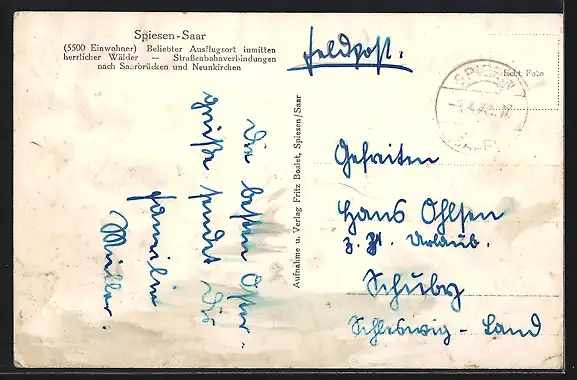 Spiesen-Saar
(5500 Einwohner) Beliebter Ausflugsort inmitten
herrlicher Wälder — Straßenbahnverbindungen
nach Saarbrücken und Neunkirchen
Feldpost.
SPIESEN
Echt Foto
Die besten Oster-
grüße sendet Dir
Familie
Müller.
Aufnahme u. Verlag Fritz Boslet, Spiesen/Saar
Gefreiten
Hans Ohlsen
z. Zt. Urlaub.
Schuby
Schleswig - Land